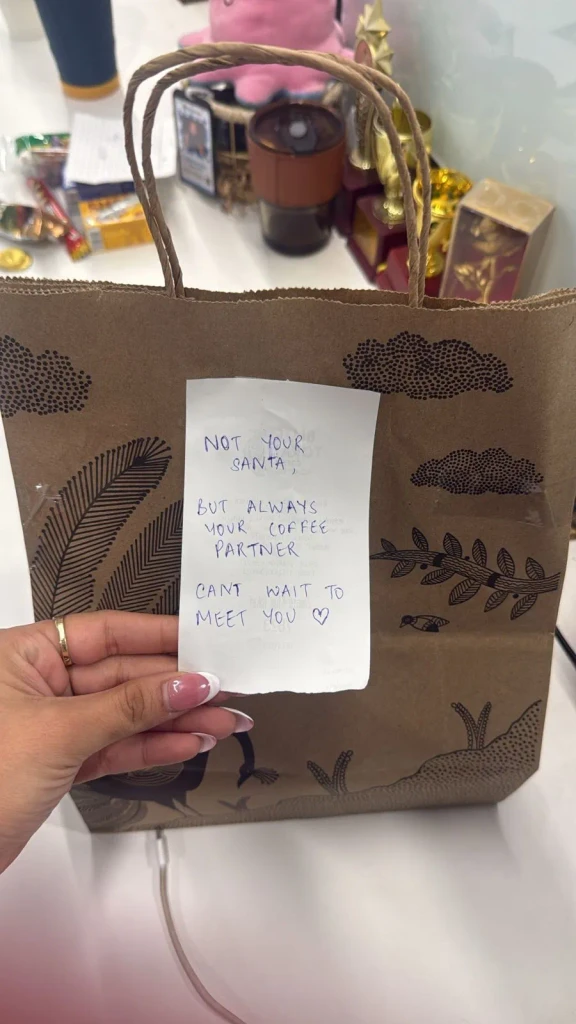 NOT YOUR
SANTA,
BUT ALWAYS
YOUR COFFEE
PARTNER
CANT WAIT TO
MEET YOU ♡